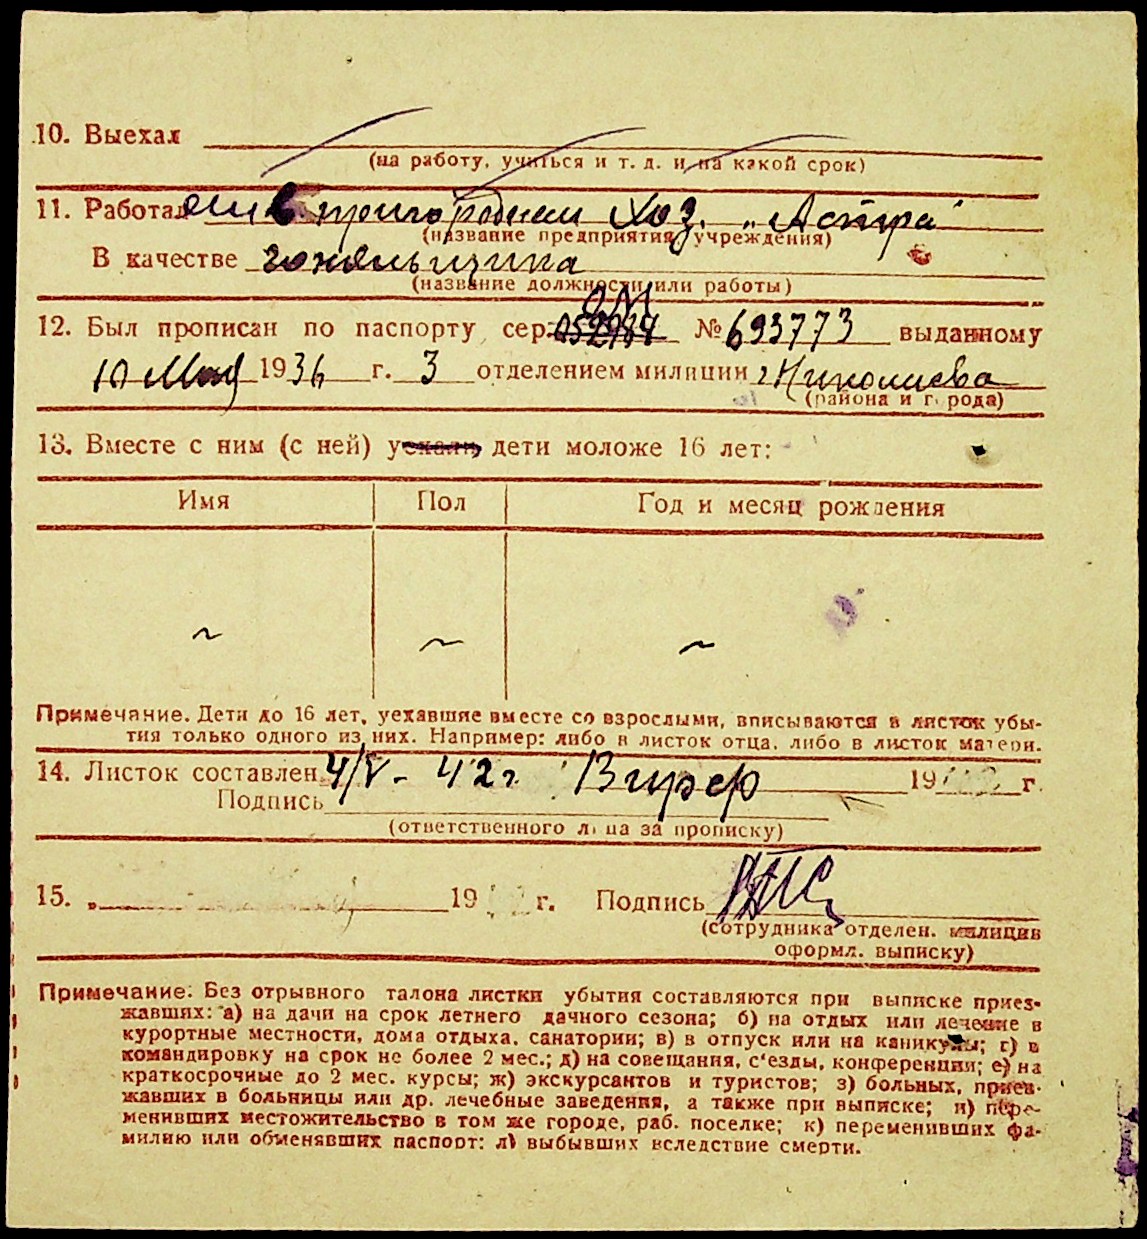 10. Выехал
(на работу, учиться и т. д. и на какой срок)
11. Работал в пригородном Хоз. „Астра"
(название предприятия, учреждения)
В качестве
(название должности или работы)
12. Был прописан по паспорту сер. № 693773 выданному
10 Мая 1936 г. 3 отделением милиции г. Николаева
(района и города)
13. Вместе с ним (с ней) уехали дети моложе 16 лет:
Имя Пол Год и месяц рождения
Примечание. Дети до 16 лет, уехавшие вместе со взрослыми, вписываются в листок убы-
тия только одного из них. Например: либо в листок отца, либо в листок матери.
14. Листок составлен 4/V - 42 г. 19 г.
Подпись
(ответственного лица за прописку)
15. „ 19 г. Подпись
(сотрудника отделен. милиции
оформл. выписку)
Примечание: Без отрывного талона листки убытия составляются при выписке приез-
жавших: а) на дачи на срок летнего дачного сезона; б) на отдых или лечение в
курортные местности, дома отдыха, санатории; в) в отпуск или на каникулы; г) в
командировку на срок не более 2 мес.; д) на совещания, с'езды, конференции; е) на
краткосрочные до 2 мес. курсы; ж) экскурсантов и туристов; з) больных, приез-
жавших в больницы или др. лечебные заведения, а также при выписке; и) пере-
менивших местожительство в том же городе, раб. поселке; к) переменивших фа-
милию или обменявших паспорт: л) выбывших вследствие смерти.